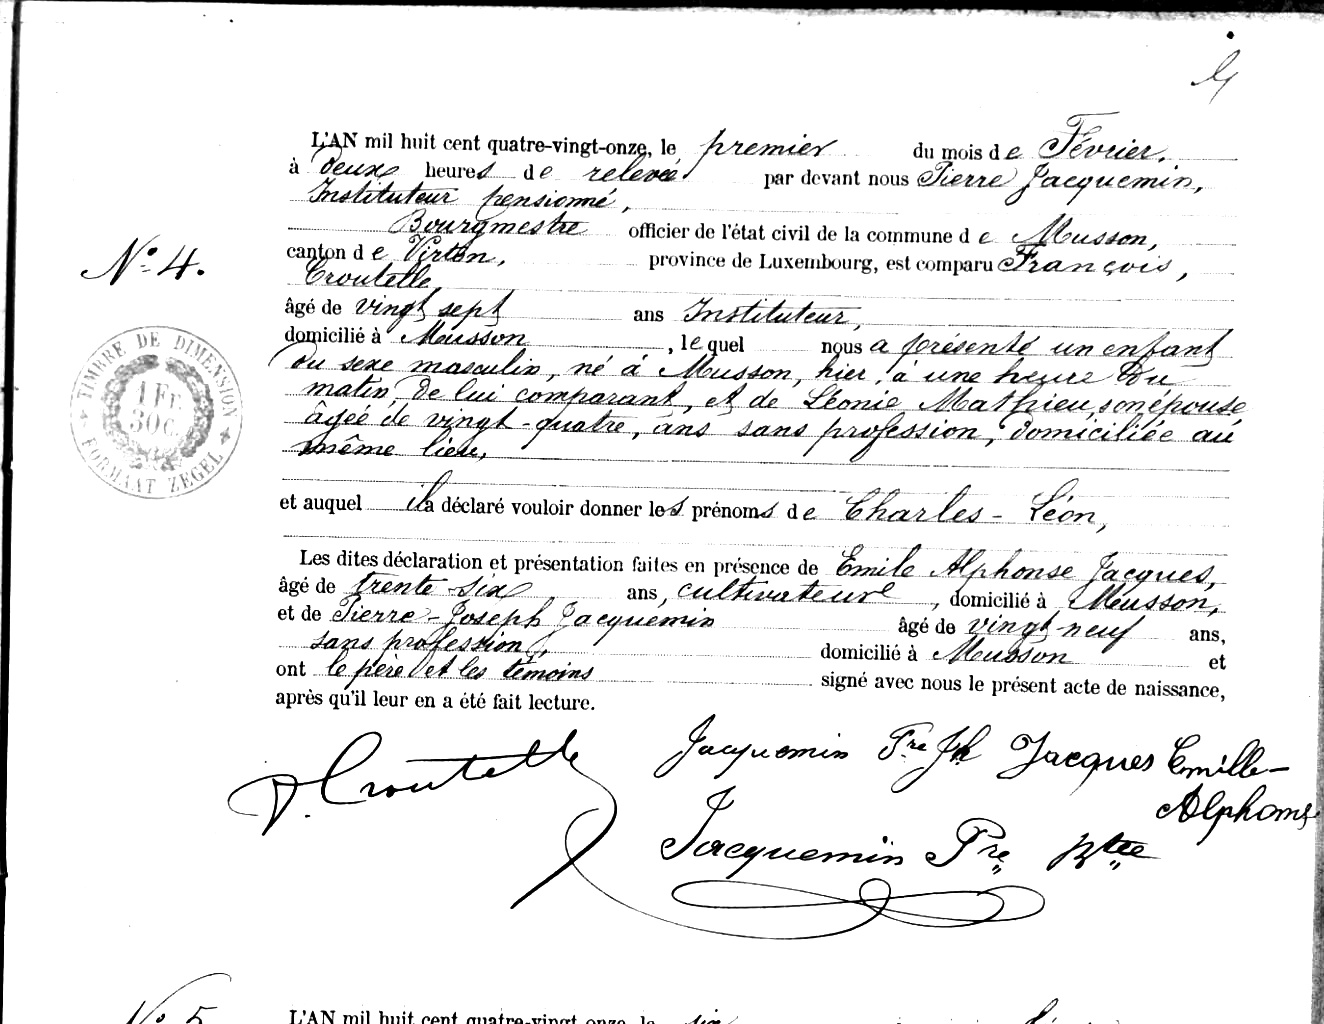 L'AN mil huit cent quatre-vingt-onze, le premier du mois de Février,
à deux heures de relevée par devant nous Pierre Jacquemin,
Instituteur pensionné,
Bourgmestre officier de l'état civil de la commune de Musson,
canton de Virton, province de Luxembourg, est comparu François,
Croutelle
âgé de vingt sept ans Instituteur,
domicilié à Musson, lequel nous a présenté un enfant
du sexe masculin, né à Musson, hier, à une heure du
matin, de lui comparant, et de Léonie Mathieu, son épouse
âgée de vingt-quatre, ans sans profession, domiciliée au
même lieu,
et auquel il a déclaré vouloir donner les prénoms de Charles-Léon,
Les dites déclaration et présentation faites en présence de Emile Alphonse Jacques,
âgé de trente-six ans, cultivateur, domicilié à Musson,
et de Pierre-Joseph Jacquemin âgé de vingt neuf ans,
sans profession, domicilié à Musson et
ont le père et les témoins signé avec nous le présent acte de naissance,
après qu'il leur en a été fait lecture.
N° 4.
TIMBRE DE DIMENSION
1 Fr.
30 c.
FORMAAT ZEGEL
Jacquemin Pre Jh Jacques Emille-
Alphonse
Croutelle
Jacquemin Pre Bte
N° 5
L'AN mil huit cent quatre-vingt onze, le six